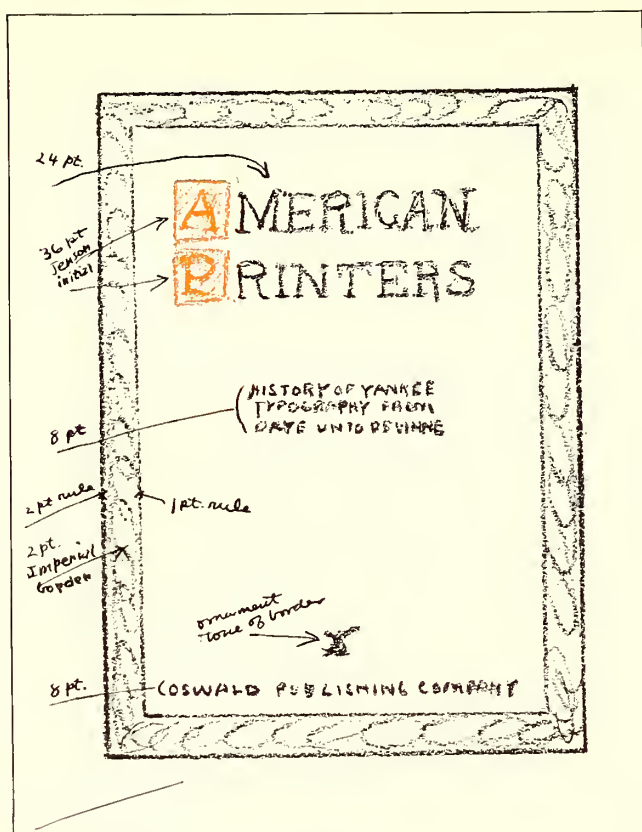 24 pt.
AMERICAN
36 pt
Jenson
initial
PRINTERS
HISTORY OF YANKEE
TYPOGRAPHY FROM
DAYE UNTO DEVINNE
8 pt
2 pt rule
1 pt. rule
2 pt.
Imperial
border
ornament
tone of border
8 pt.
OSWALD PUBLISHING COMPANY